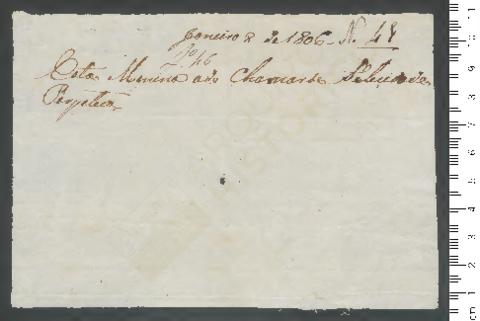 Janeiro 2 de 1806 N. 48
Nº 46
Esta Menina ade Chamarse Felicidade
Perpetua